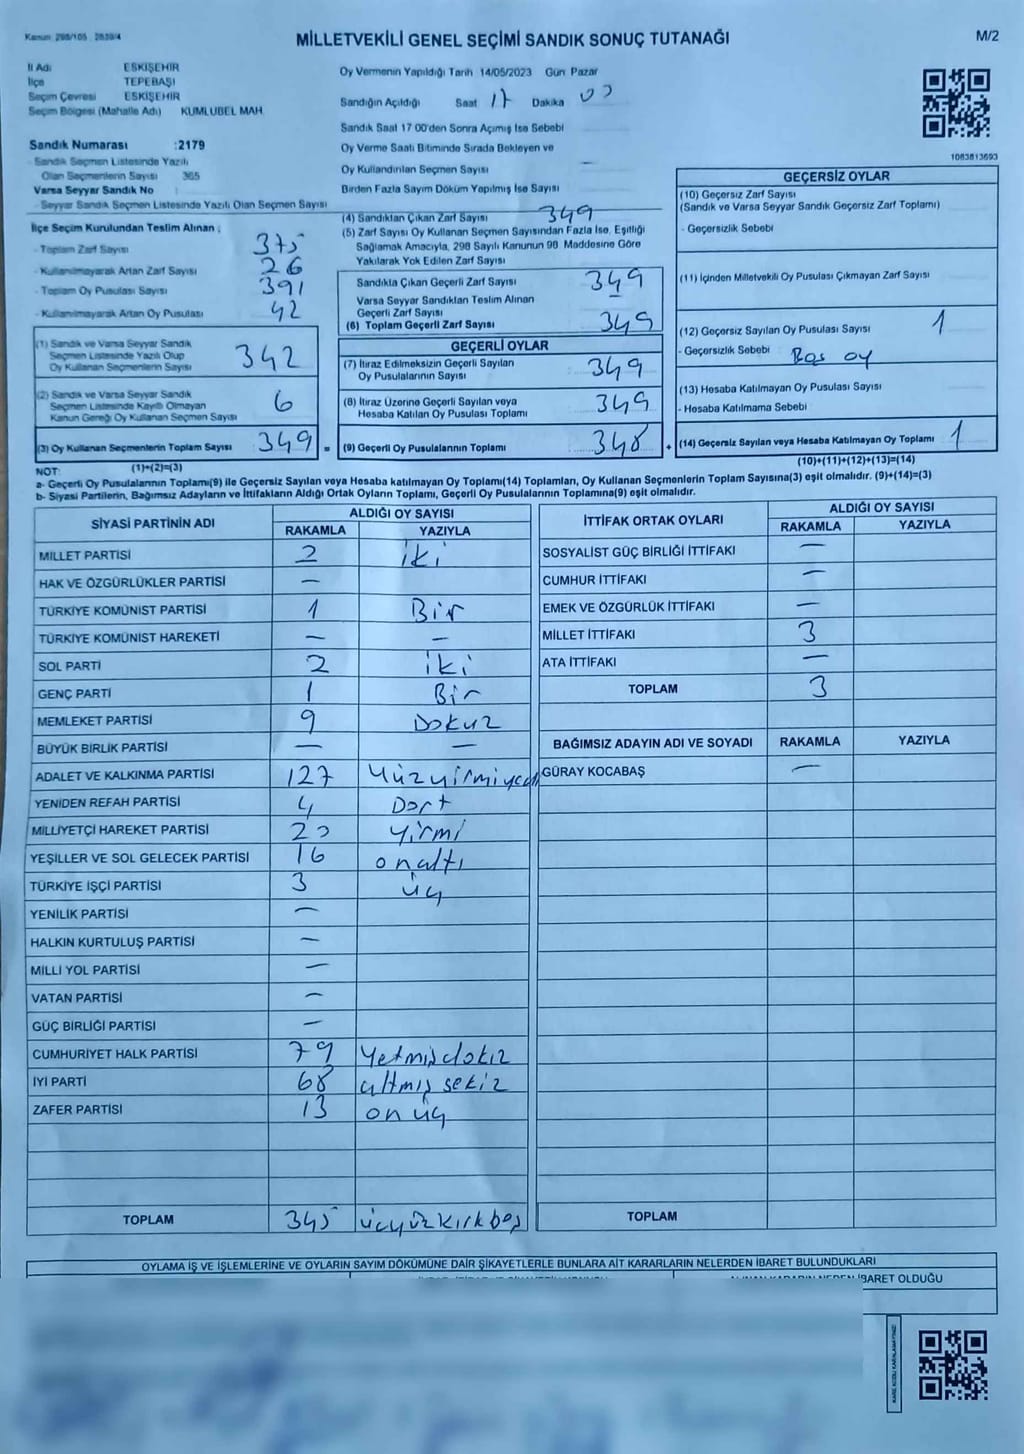 Kanun 298/105 2839/4
MİLLETVEKİLİ GENEL SEÇİMİ SANDIK SONUÇ TUTANAĞI
M/2
İl Adı ESKİŞEHİR
İlçe TEPEBAŞI
Seçim Çevresi ESKİŞEHİR
Seçim Bölgesi (Mahalle Adı) KUMLUBEL MAH
Sandık Numarası :2179
- Sandık Seçmen Listesinde Yazılı
Olan Seçmenlerin Sayısı 365
Varsa Seyyar Sandık No :
- Seyyar Sandık Seçmen Listesinde Yazılı Olan Seçmen Sayısı
Oy Vermenin Yapıldığı Tarih 14/05/2023 Gün Pazar
Sandığın Açıldığı Saat 17 Dakika 00
Sandık Saat 17 00'den Sonra Açılmış İse Sebebi
Oy Verme Saati Bitiminde Sırada Bekleyen ve
Oy Kullandırılan Seçmen Sayısı —
Birden Fazla Sayım Döküm Yapılmış İse Sayısı
1083813693
İlçe Seçim Kurulundan Teslim Alınan ;
- Toplam Zarf Sayısı 375
- Kullanılmayarak Artan Zarf Sayısı 26
- Toplam Oy Pusulası Sayısı 391
- Kullanılmayarak Artan Oy Pusulası 42
(1) Sandık ve Varsa Seyyar Sandık
Seçmen Listesinde Yazılı Olup
Oy Kullanan Seçmenlerin Sayısı 342
(2) Sandık ve Varsa Seyyar Sandık
Seçmen Listesinde Kayıtlı Olmayan
Kanun Gereği Oy Kullanan Seçmen Sayısı 6
(3) Oy Kullanan Seçmenlerin Toplam Sayısı 349 =
(1)+(2)=(3)
(4) Sandıktan Çıkan Zarf Sayısı 349
(5) Zarf Sayısı Oy Kullanan Seçmen Sayısından Fazla İse, Eşitliği
Sağlamak Amacıyla, 298 Sayılı Kanunun 98. Maddesine Göre
Yakılarak Yok Edilen Zarf Sayısı
Sandıkla Çıkan Geçerli Zarf Sayısı 349
Varsa Seyyar Sandıktan Teslim Alınan
Geçerli Zarf Sayısı
(6) Toplam Geçerli Zarf Sayısı 349
GEÇERLİ OYLAR
(7) İtiraz Edilmeksizin Geçerli Sayılan
Oy Pusulalarının Sayısı 349
(8) İtiraz Üzerine Geçerli Sayılan veya
Hesaba Katılan Oy Pusulası Toplamı 349
(9) Geçerli Oy Pusulalarının Toplamı 348 +
GEÇERSİZ OYLAR
(10) Geçersiz Zarf Sayısı
(Sandık ve Varsa Seyyar Sandık Geçersiz Zarf Toplamı)
- Geçersizlik Sebebi
(11) İçinden Milletvekili Oy Pusulası Çıkmayan Zarf Sayısı
(12) Geçersiz Sayılan Oy Pusulası Sayısı 1
- Geçersizlik Sebebi Boş oy
(13) Hesaba Katılmayan Oy Pusulası Sayısı
- Hesaba Katılmama Sebebi
(14) Geçersiz Sayılan veya Hesaba Katılmayan Oy Toplamı 1
(10)+(11)+(12)+(13)=(14)
NOT:
a- Geçerli Oy Pusulalarının Toplamı(9) ile Geçersiz Sayılan veya Hesaba katılmayan Oy Toplamı(14) Toplamları, Oy Kullanan Seçmenlerin Toplam Sayısına(3) eşit olmalıdır. (9)+(14)=(3)
b- Siyasi Partilerin, Bağımsız Adayların ve İttifakların Aldığı Ortak Oyların Toplamı, Geçerli Oy Pusulalarının Toplamına(9) eşit olmalıdır.
SİYASİ PARTİNİN ADI ALDIĞI OY SAYISI
RAKAMLA YAZIYLA
MİLLET PARTİSİ 2 iki
HAK VE ÖZGÜRLÜKLER PARTİSİ —
TÜRKİYE KOMÜNİST PARTİSİ 1 Bir
TÜRKİYE KOMÜNİST HAREKETİ — —
SOL PARTİ 2 iki
GENÇ PARTİ 1 Bir
MEMLEKET PARTİSİ 9 Dokuz
BÜYÜK BİRLİK PARTİSİ — —
ADALET VE KALKINMA PARTİSİ 127 Yüzyirmiyedi
YENİDEN REFAH PARTİSİ 4 Dört
MİLLİYETÇİ HAREKET PARTİSİ 20 Yirmi
YEŞİLLER VE SOL GELECEK PARTİSİ 16 onaltı
TÜRKİYE İŞÇİ PARTİSİ 3 üç
YENİLİK PARTİSİ —
HALKIN KURTULUŞ PARTİSİ —
MİLLİ YOL PARTİSİ —
VATAN PARTİSİ —
GÜÇ BİRLİĞİ PARTİSİ —
CUMHURİYET HALK PARTİSİ 79 Yetmiş dokuz
İYİ PARTİ 68 altmış sekiz
ZAFER PARTİSİ 13 on üç
TOPLAM 345 üçyüzkırkbeş
İTTİFAK ORTAK OYLARI ALDIĞI OY SAYISI
RAKAMLA YAZIYLA
SOSYALİST GÜÇ BİRLİĞİ İTTİFAKI —
CUMHUR İTTİFAKI —
EMEK VE ÖZGÜRLÜK İTTİFAKI —
MİLLET İTTİFAKI 3
ATA İTTİFAKI —
TOPLAM 3
BAĞIMSIZ ADAYIN ADI VE SOYADI RAKAMLA YAZIYLA
GÜRAY KOCABAŞ —
TOPLAM
OYLAMA İŞ VE İŞLEMLERİNE VE OYLARIN SAYIM DÖKÜMÜNE DAİR ŞİKAYETLERLE BUNLARA AİT KARARLARIN NELERDEN İBARET BULUNDUKLARI
İBARET OLDUĞU